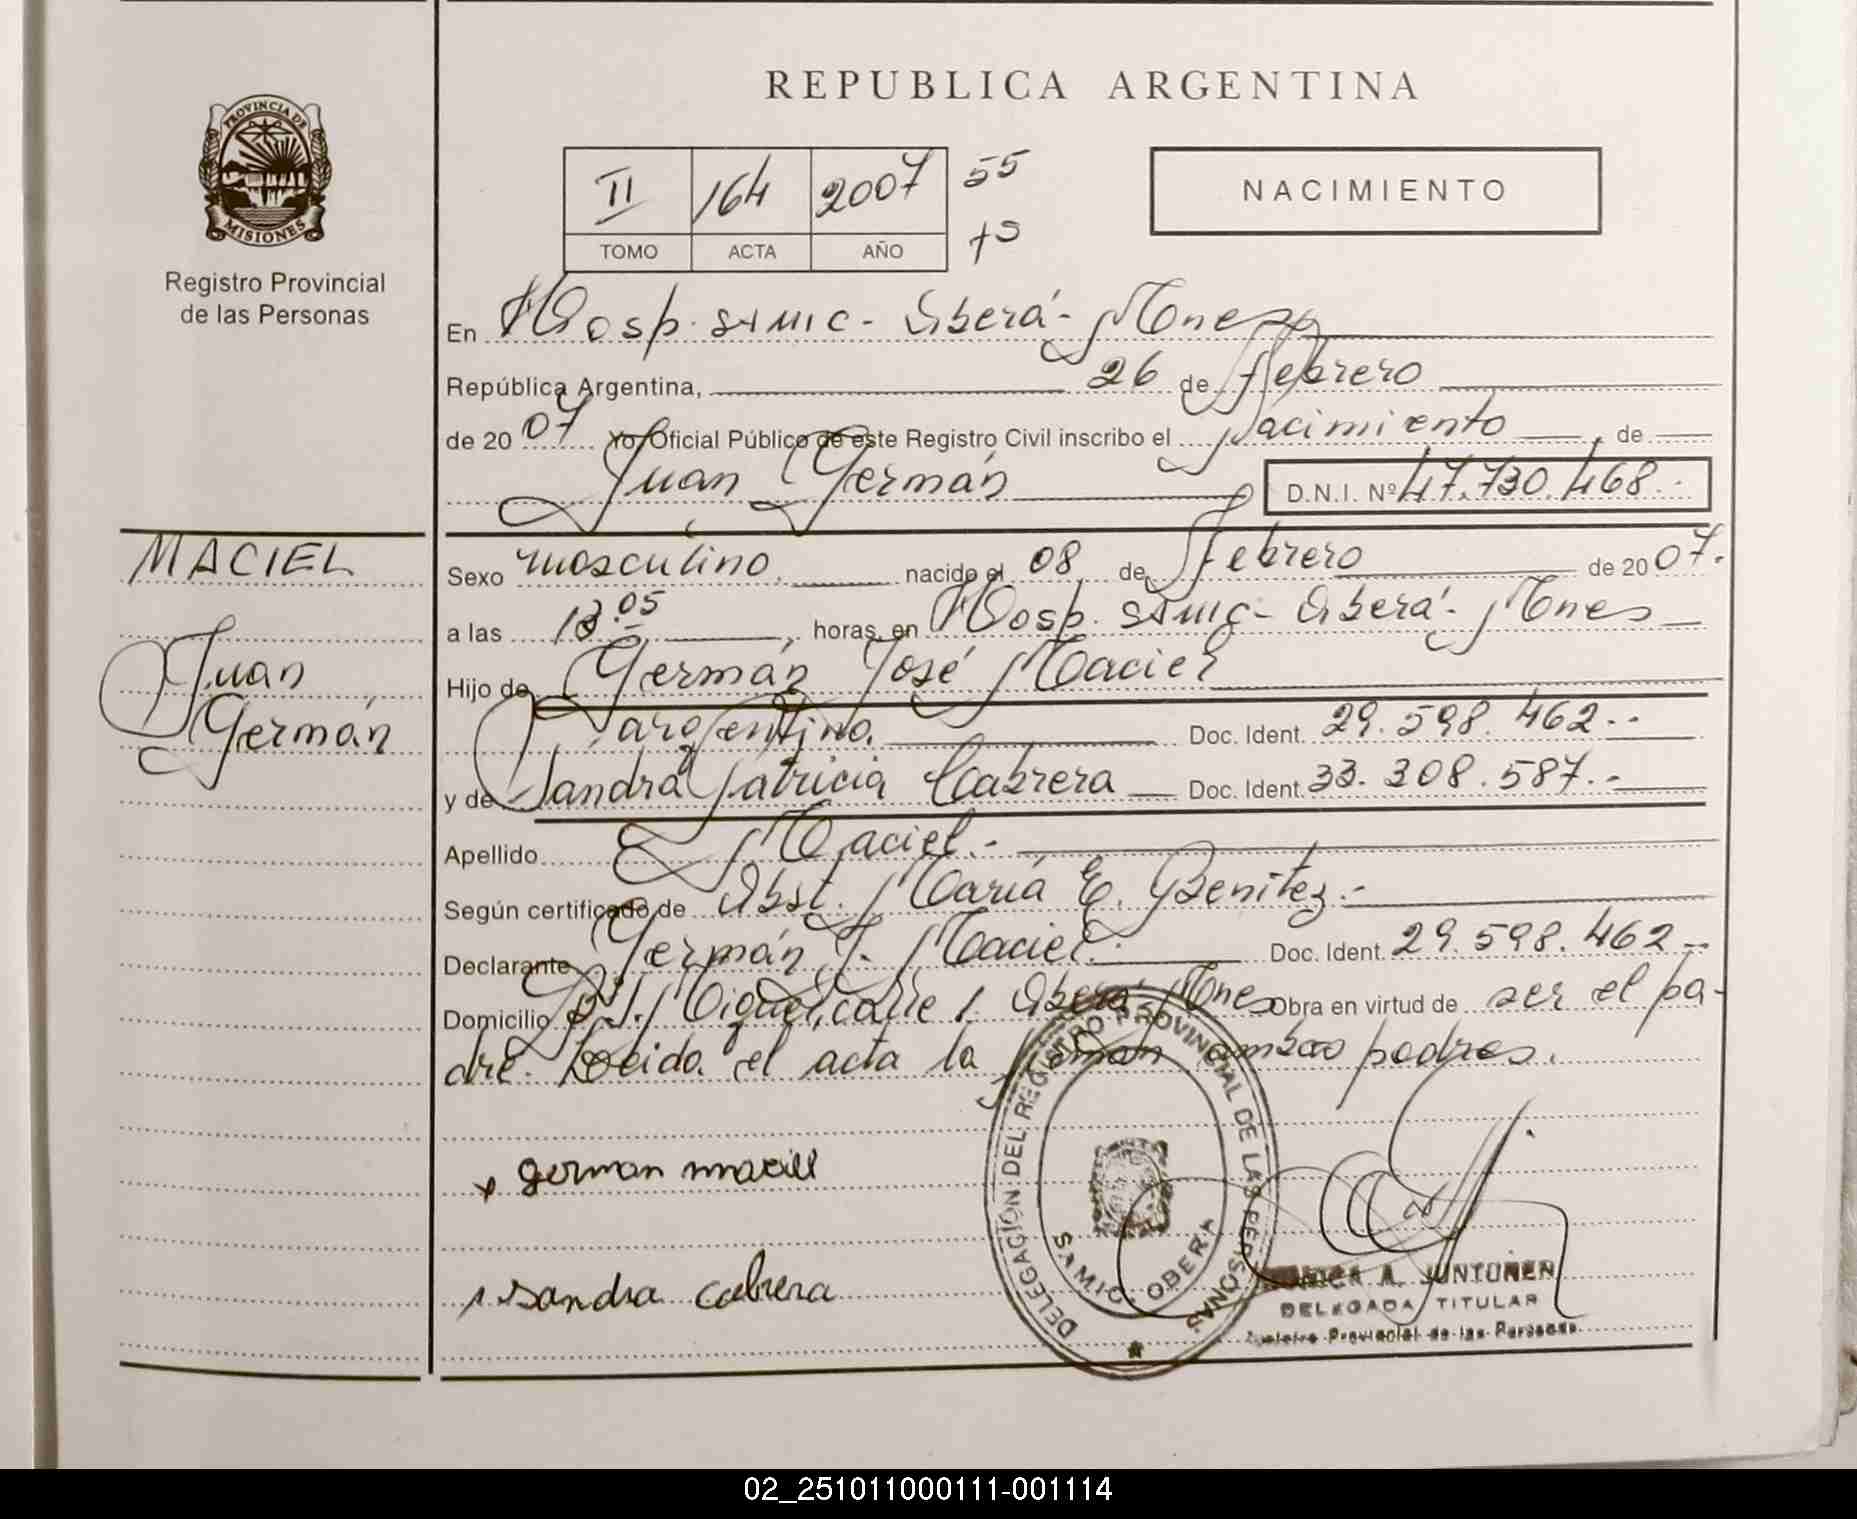 REPUBLICA ARGENTINA
PROVINCIA DE
MISIONES
Registro Provincial
de las Personas
II 164 2007 55
TOMO ACTA AÑO 75
NACIMIENTO
En Hosp. SAMIC - Oberá - Mnes
República Argentina, 26 de Febrero
de 2007 Yo, Oficial Público de este Registro Civil inscribo el Nacimiento, de
Juan Germán D.N.I. Nº 47.730.468.-
MACIEL
Juan
Germán
Sexo masculino. nacido el 08 de Febrero de 2007.
a las 13.05 horas, en Hosp. SAMIC - Oberá - Mnes
Hijo de Germán José Maciel
argentino. Doc. Ident. 29.598.462.-
y de Sandra Patricia Cabrera Doc. Ident. 33.308.587.-
Apellido Maciel.-
Según certificado de Obst. María E. Benítez.-
Declarante Germán J. Maciel.- Doc. Ident. 29.598.462.-
Domicilio Bº S. Miguel, calle 1 Oberá Mnes Obra en virtud de ser el pa-
dre. Leida el acta la firman ambos padres.
german maciel
sandra cabrera
DELEGACIÓN DEL REGISTRO PROVINCIAL DE LAS PERSONAS
SAMIC OBERA
A. JUNTUNEN
DELEGADA TITULAR
Registro Provincial de las Personas
02_251011000111-001114